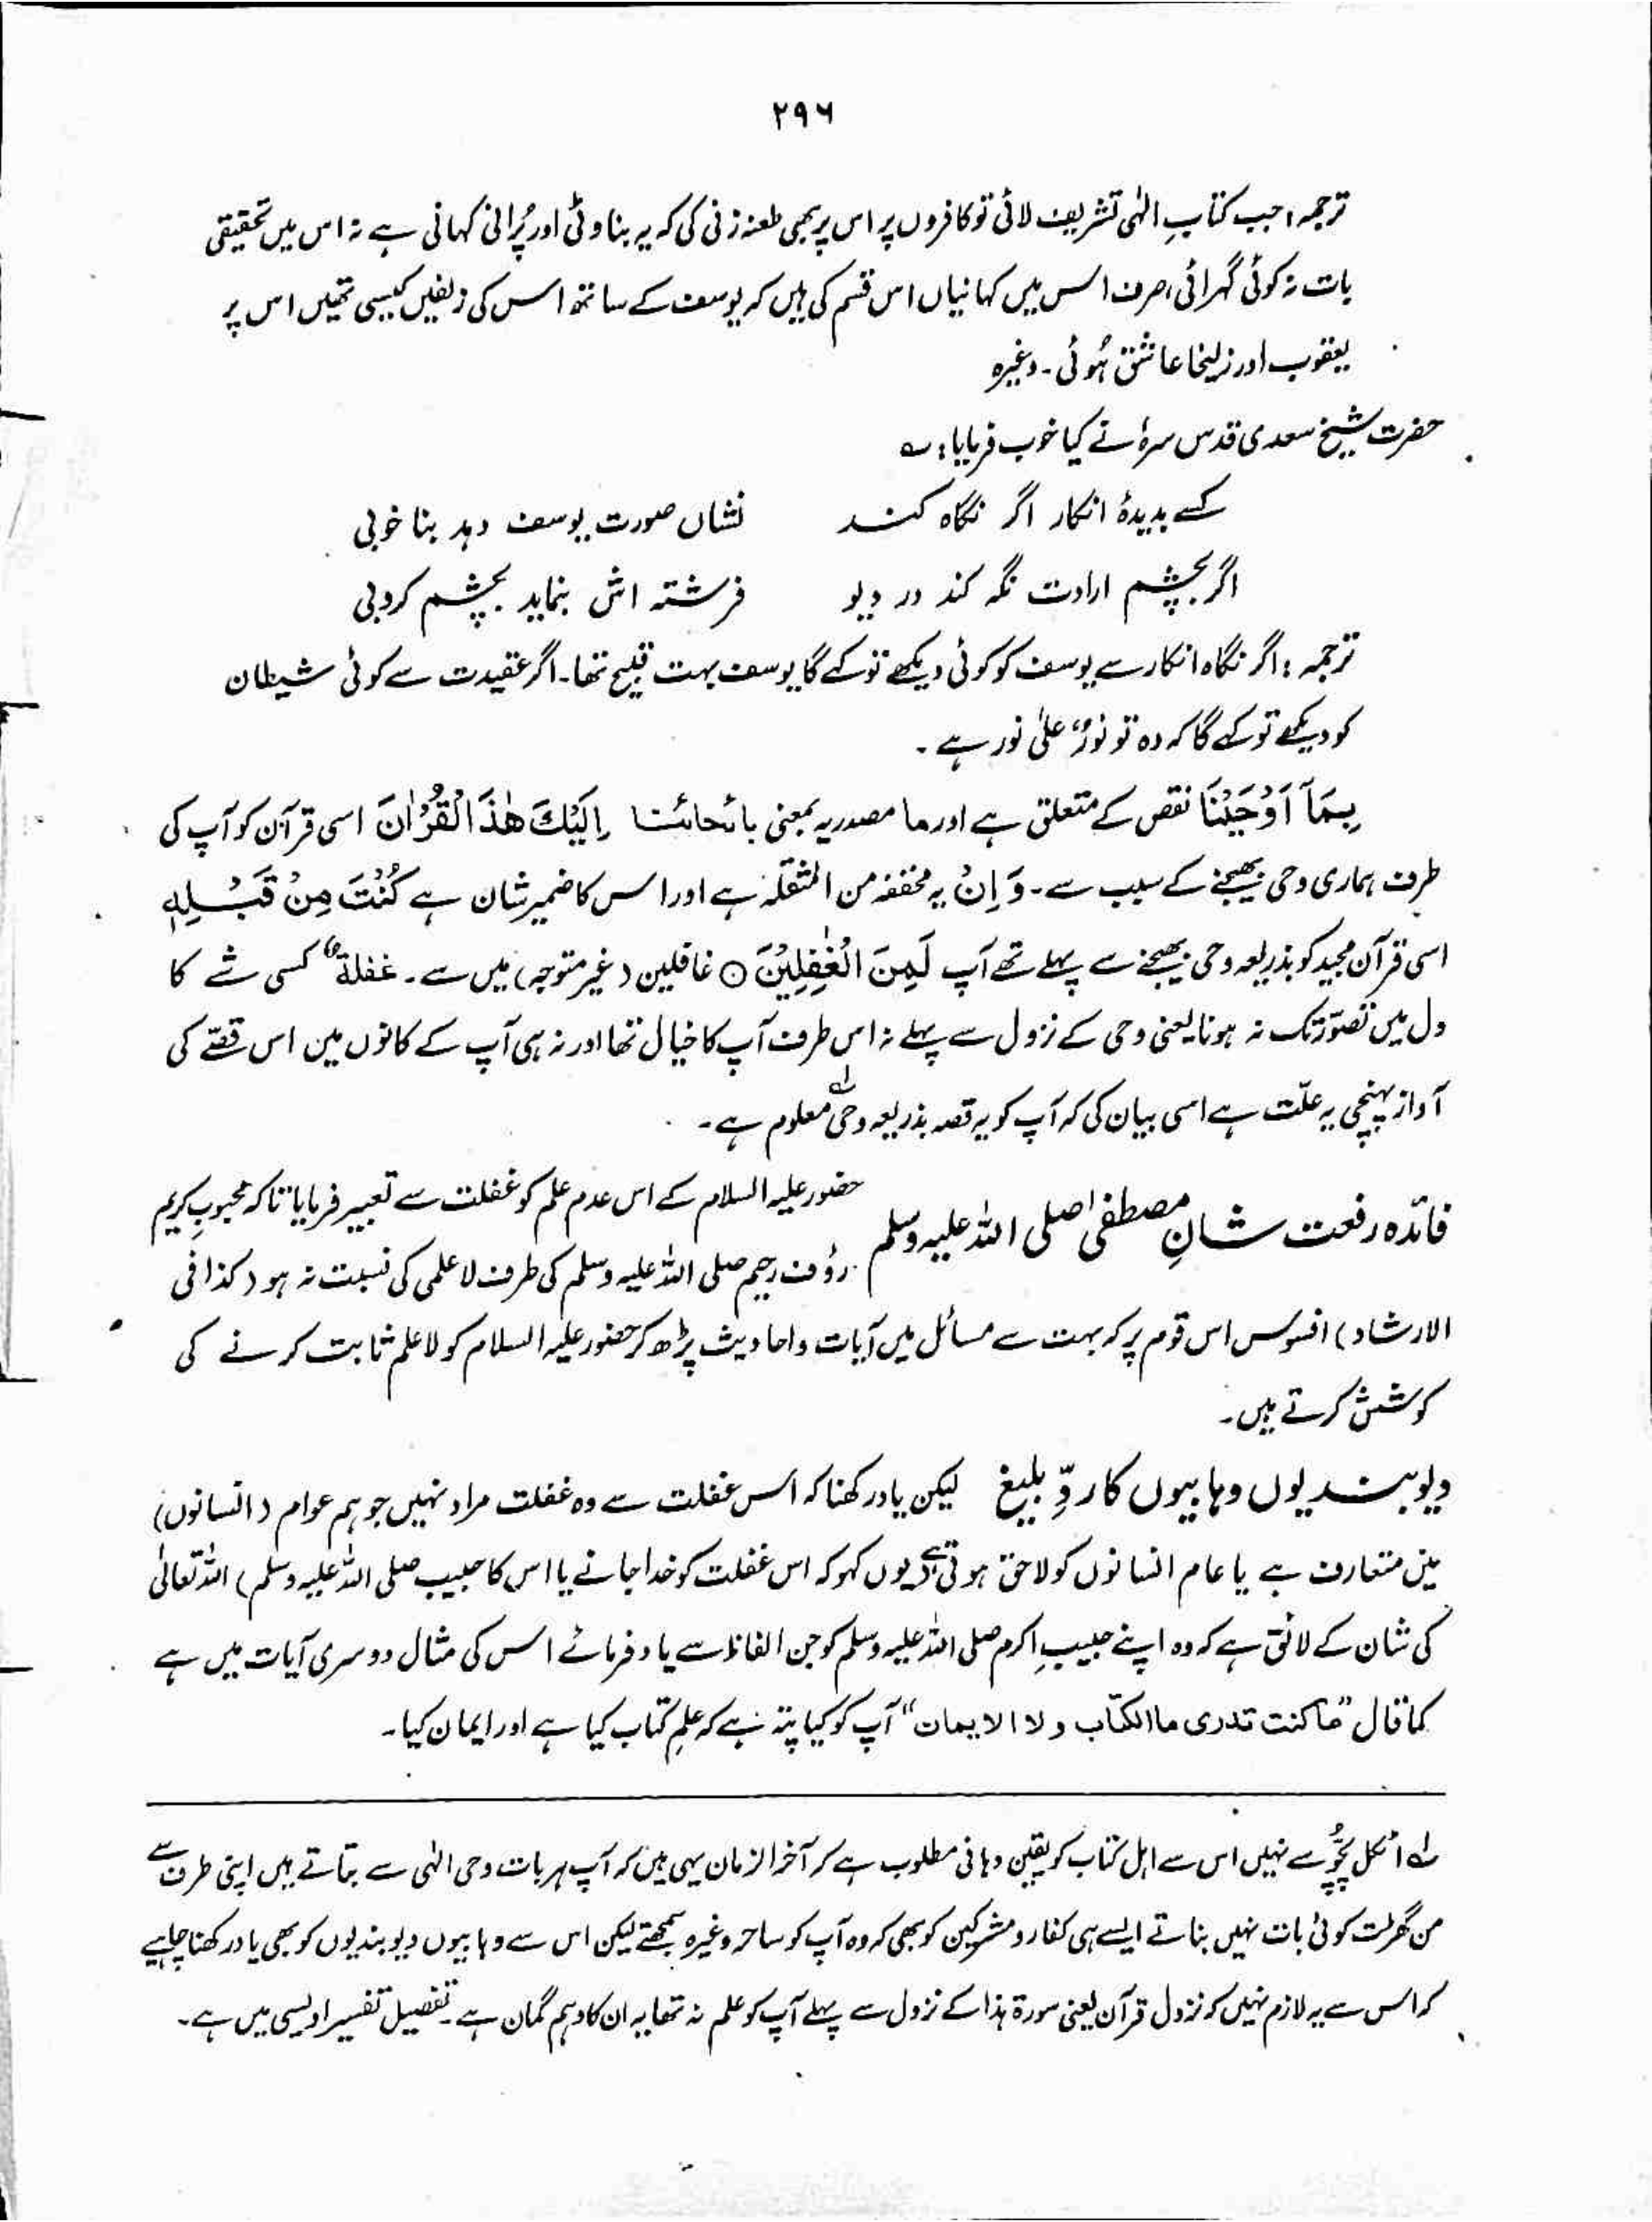 ۲۹۶
ترجمہ: جب کتابِ الٰہی تشریف لائی تو کافروں پر اس پر بھی طعنہ زنی کی کہ یہ بناوٹی اور پُرانی کہانی ہے نہ اس میں تحقیقی
بات نہ کوئی گہرائی، صرف اس میں کہانیاں اس قسم کی ہیں کہ یوسف کے ساتھ اس کی زلفیں کیسی تھیں اس پر
یعقوب اور زلیخا عاشق ہُوئی ۔ وغیرہ
حضرت شیخ سعدی قدس سرہٗ نے کیا خوب فرمایا : ؎
کسے بدیدۂ انکار اگر نگاہ کند نشاں صورت یوسف دہد بنا خوبی
اگر بچشم ارادت نگہ کند در دیو فرشتہ اش بنماید بچشم کروبی
ترجمہ : اگر نگاہ انکار سے یوسف کو کوئی دیکھے تو کہے گا یوسف بہت قبیح تھا۔ اگر عقیدت سے کوئی شیطان
کو دیکھے تو کہے گا کہ وہ تو نورٌ علیٰ نور ہے ۔
بِمَآ اَوْحَیْنَآ نقص کے متعلق ہے اور ما مصدریہ بمعنی بائحائنا اِلَیْكَ هٰذَا الْقُرْاٰنَ اسی قرآن کو آپ کی
طرف ہماری وحی بھیجنے کے سبب سے ۔ وَ اِنْ یہ مخففہ من المثقلہ ہے اور اس کا ضمیر شان ہے كُنْتَ مِنْ قَبْلِهٖ
اسی قرآن مجید کو بذریعہ وحی بھیجنے سے پہلے تھے آپ لَمِنَ الْغٰفِلِیْنَ ○ غافلین (غیر متوجہ) میں سے ۔ غفلۃ کسی شے کا
دل میں تصوّر تک نہ ہونا یعنی وحی کے نزول سے پہلے نہ اس طرف آپ کا خیال تھا اور نہ ہی آپ کے کانوں میں اس قصّے کی
آواز پہنچی یہ علّت ہے اسی بیان کی کہ آپ کو یہ قصہ بذریعہ وحی ؂۱ معلوم ہے ۔
فائدہ رفعت شانِ مصطفٰی صلی اللہ علیہ وسلم حضور علیہ السلام کے اس عدم علم کو غفلت سے تعبیر فرمایا تاکہ محبوبِ کریم
رؤف رحیم صلی اللہ علیہ وسلم کی طرف لاعلمی کی نسبت نہ ہو (کذا فی
الارشاد) افسوس اس قوم پر کہ بہت سے مسائل میں آیات و احادیث پڑھ کر حضور علیہ السلام کو لاعلم ثابت کرنے کی
کوشش کرتے ہیں ۔
دیوبندیوں وہابیوں کا ردِّ بلیغ لیکن یاد رکھنا کہ اس غفلت سے وہ غفلت مراد نہیں جو ہم عوام (انسانوں)
میں متعارف ہے یا عام انسانوں کو لاحق ہوتی ہے یوں کہو کہ اس غفلت کو خدا جانے یا اس کا حبیب صلی اللہ علیہ وسلم) اللہ تعالیٰ
کی شان کے لائق ہے کہ وہ اپنے حبیبِ اکرم صلی اللہ علیہ وسلم کو جن الفاظ سے یاد فرمائے اس کی مثال دوسری آیات میں ہے
کما قال "ما کنت تدری ما الکتٰب و لا الایمان" آپ کو کیا پتہ ہے کہ علمِ کتاب کیا ہے اور ایمان کیا ۔
؂۱ اٹکل پچّو سے نہیں اس سے اہل کتاب کو یقین دہانی مطلوب ہے کہ آخر الزمان یہی ہیں کہ آپ ہر بات وحی الٰہی سے بتاتے ہیں اپنی طرف سے
من گھڑت کوئی بات نہیں بناتے ایسے ہی کفار و مشرکین کو بھی کہ وہ آپ کو ساحر وغیرہ سمجھتے لیکن اس سے وہابیوں دیوبندیوں کو بھی یاد رکھنا چاہیے
کہ اس سے یہ لازم نہیں کہ نزول قرآن یعنی سورۃ ہٰذا کے نزول سے پہلے آپ کو علم نہ تھا یہ ان کا وہم گمان ہے ۔ تفصیل تفسیر اویسی میں ہے ۔